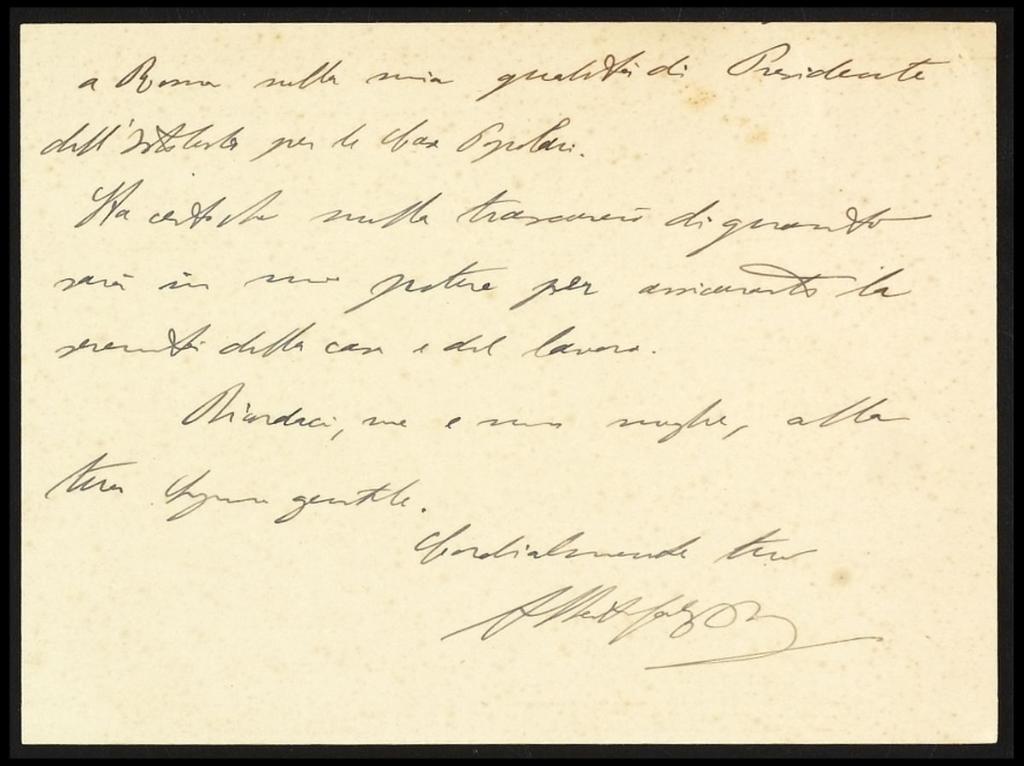 a Roma nella mia qualità di Presidente
dell'Istituto per le Case Popolari.
Sta certo che nulla trascurerò di quanto
sarà in mio potere per assicurarti la
serenità della casa e del lavoro.
Ricordaci, me e mia moglie, alla
tua Signora gentile.
Cordialmente tuo
Alberto